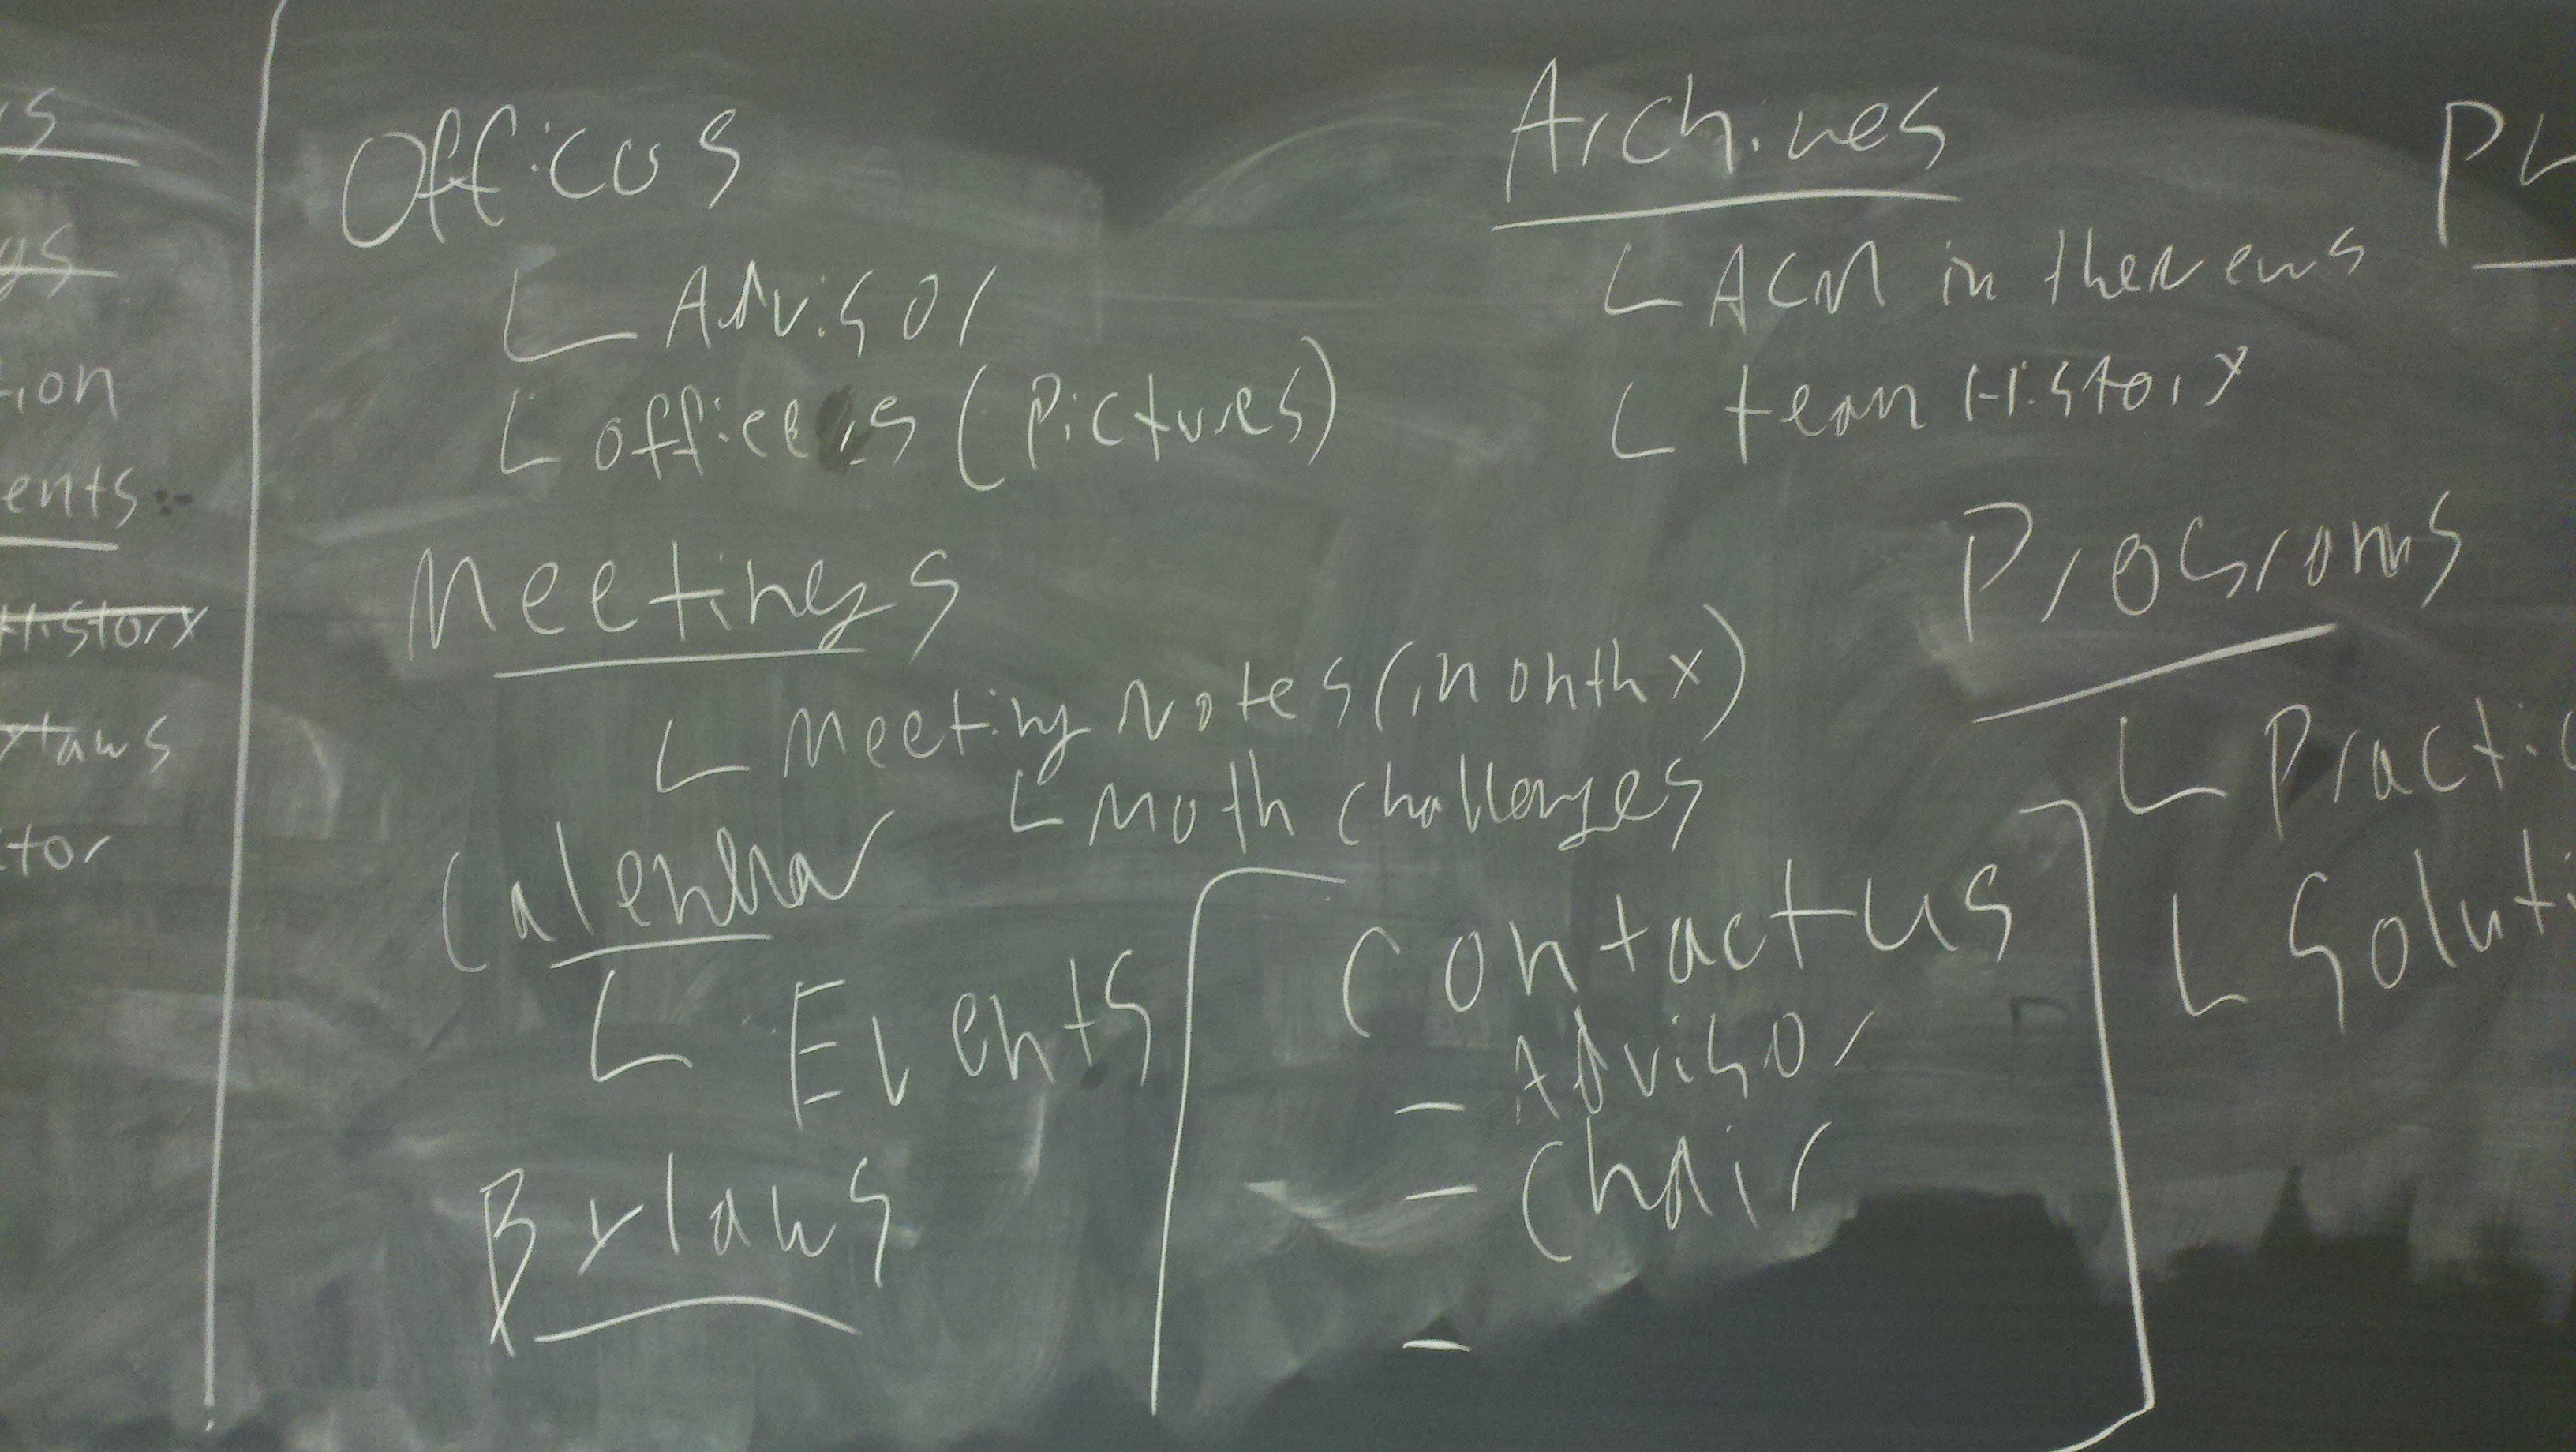 s
gs
tion
ents
History
ylaws
tor
Officers
Advisor
officers (Pictures)
Meetings
Meeting Notes (monthy)
Math challenges
Calendar
Events
Bylaws
Archives
ACM in the News
team History
Programs
Practic
Soluti
Contact us
- Advisor
- Chair
-